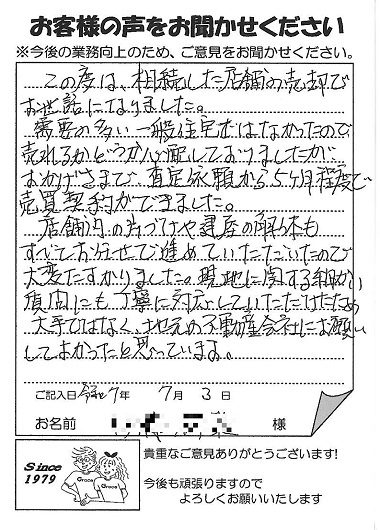 お客様の声をお聞かせください
※今後の業務向上のため、ご意見をお聞かせください。
この度は、相続した店舗の売却で
お世話になりました。
需要の多い一般住宅ではなかったので
売れるかどうか心配しておりましたが
おかげさまで、査定依頼から5ヶ月程度で
売買契約ができました。
店舗内の片づけや建屋の解体も
すべてお任せで進めていただいたので
大変たすかりました。現地に関する細かい
質問にも丁寧に対応していただけたため
大手ではなく、地元の不動産会社にお願い
してよかったと思っています。
ご記入日 令和7年 7月 3日
お名前 様
Since
1979
Grace
Grace
貴重なご意見ありがとうございます!
今後も頑張りますので
よろしくお願いいたします